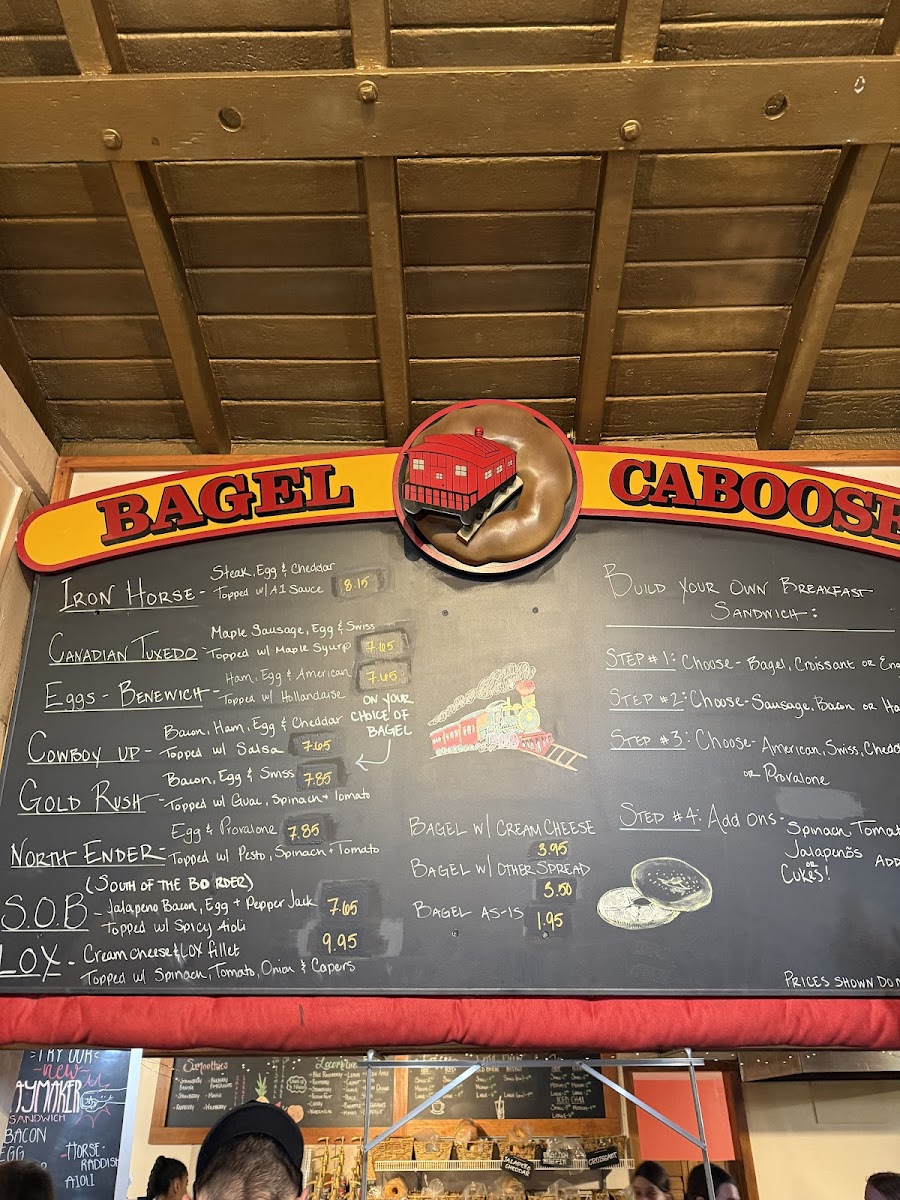 BAGEL CABOOSE
IRON HORSE - Steak, Egg & Cheddar
Topped w/ A1 Sauce 8.15
CANADIAN TUXEDO - Maple Sausage, Egg & Swiss
Topped w/ Maple Syurp 7.65
EGGS - BENEWICH - Ham, Egg & American
Topped w/ Hollandaise 7.65
ON YOUR
CHOICE OF
BAGEL
COWBOY UP - Bacon, Ham, Egg & Cheddar
Topped w/ Salsa 7.65
GOLD RUSH - Bacon, Egg & Swiss 7.85
Topped w/ Guac, Spinach + Tomato
NORTH ENDER - Egg & Provalone 7.85
Topped w/ Pesto, Spinach + Tomato
(SOUTH OF THE BORDER)
S.O.B - Jalapeno Bacon, Egg + Pepper Jack 7.65
Topped w/ Spicy Aioli
LOX - Cream cheese & LOX fillet 9.95
Topped w/ Spinach, Tomato, Onion & Capers
BAGEL W/ CREAM CHEESE
3.95
BAGEL W/ OTHER SPREAD
3.50
BAGEL AS-IS 1.95
BUILD YOUR OWN BREAKFAST
SANDWICH:
STEP #1: Choose - Bagel, Croissant OR Eng
STEP #2: Choose - Sausage, Bacon OR Ha
STEP #3: Choose - American, Swiss, Chedd
OR Provalone
STEP #4: Add Ons - Spinach Tomat
Jalapenõs
OR
CUKES!
ADD
PRICES SHOWN DO N
TRY OUR
new
AYMAKER
SANDWICH
BACON
EGG
HORSE-
RADDISH
AIOLI
Smoothies
JALAPENO
CHEDDAR
CROISSANT